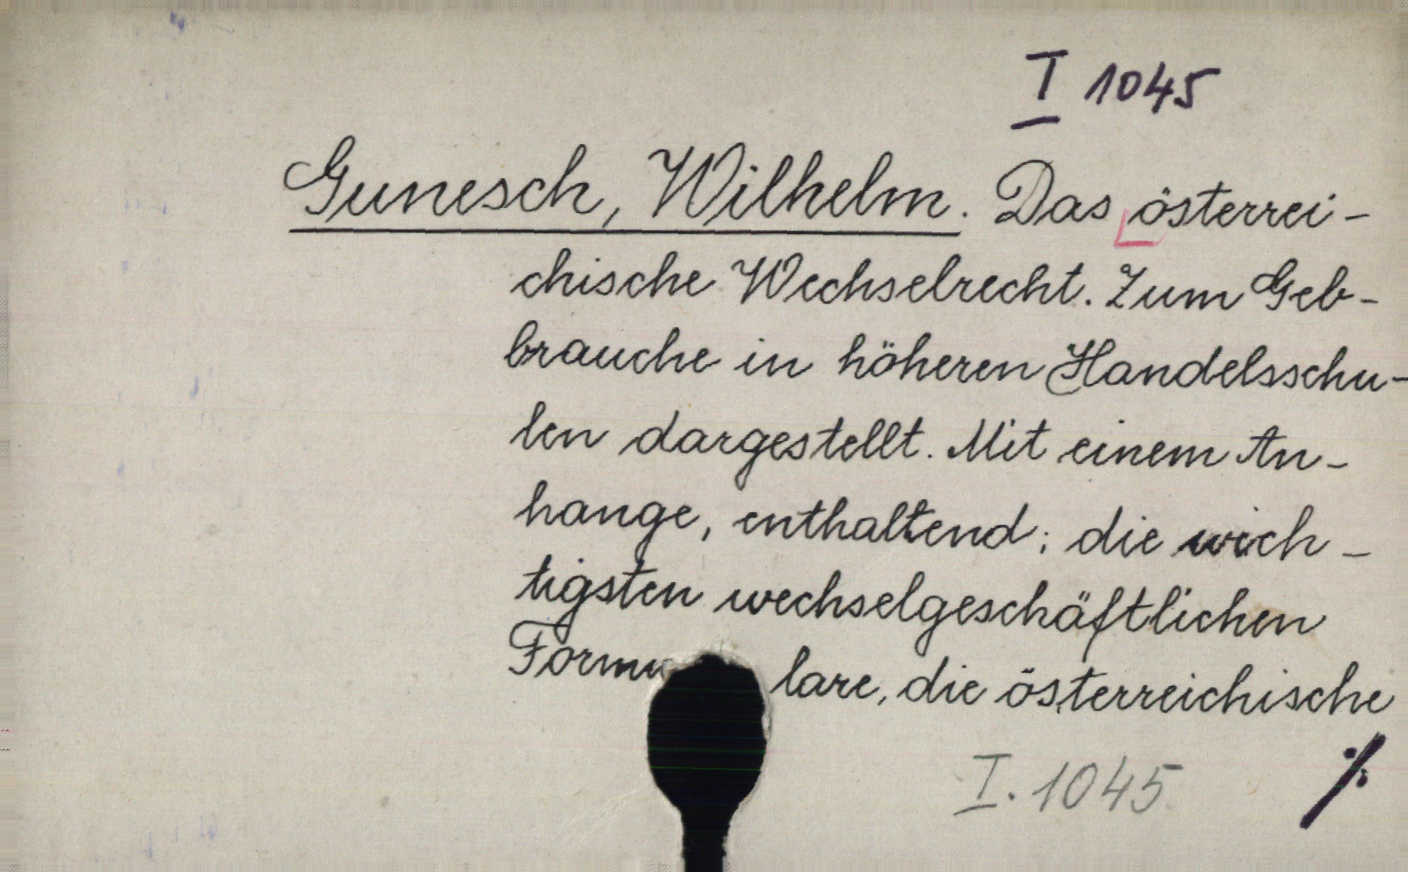 I 1045
Gunesch, Wilhelm. Das österrei-
chische Wechselrecht. Zum Geb-
brauche in höheren Handelsschu-
len dargestellt. Mit einem An-
hange, enthaltend: die wich-
tigsten wechselgeschäftlichen
Formu lare, die österreichische
I. 1045 ·/.